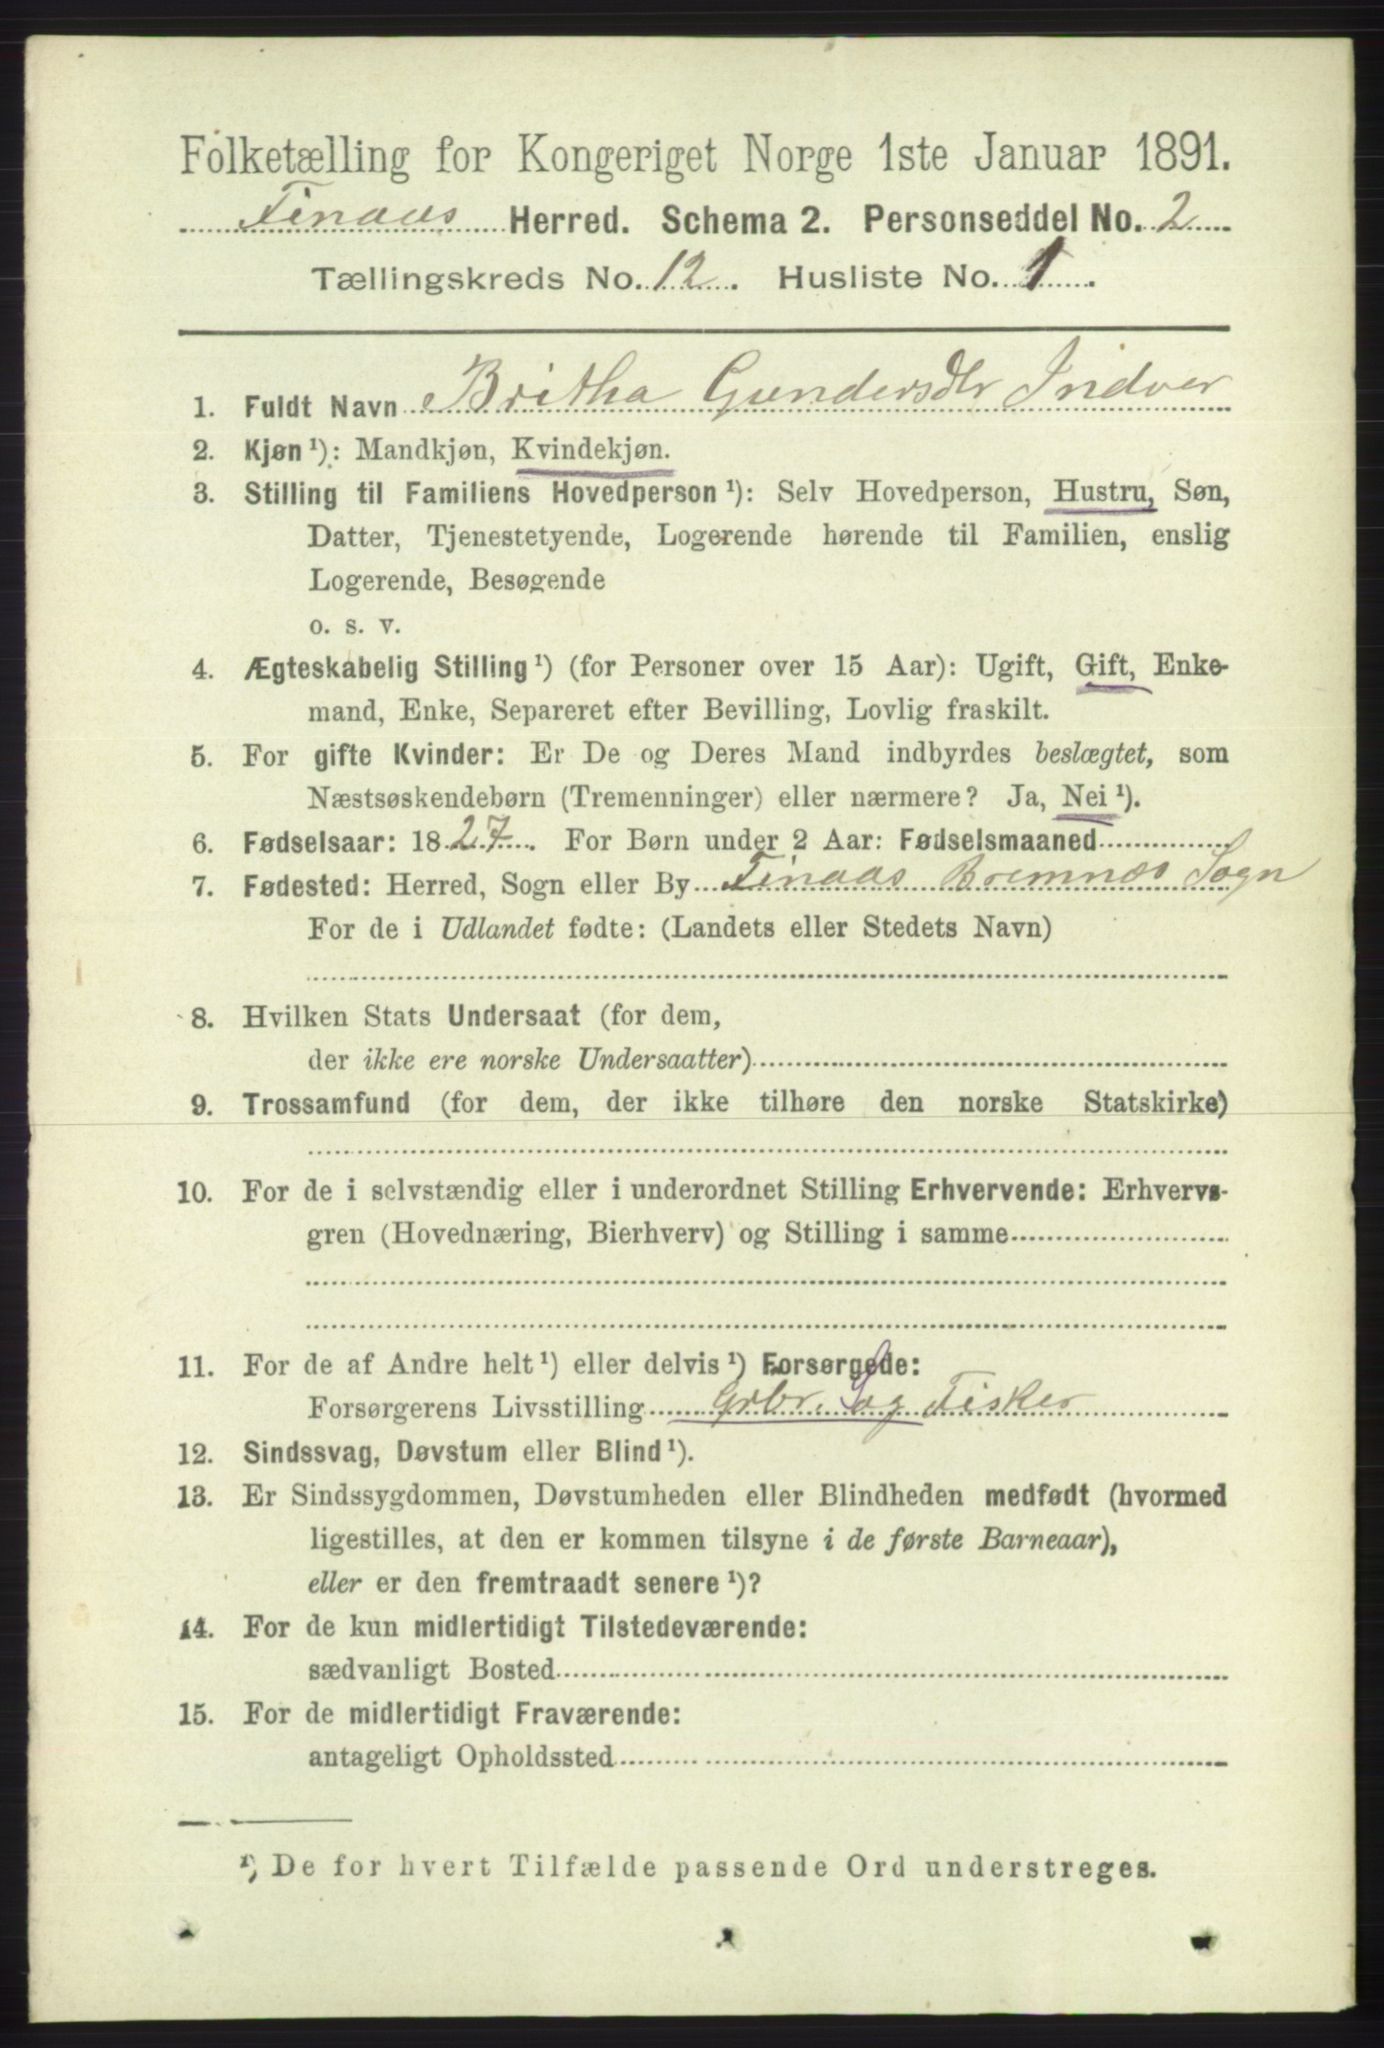 Folketælling for Kongeriget Norge 1ste Januar 1891.
Finaas Herred. Schema 2. Personseddel No. 2
Tællingskreds No. 12. Husliste No. 1
1. Fuldt Navn Britha Gundersdtr Indvær
2. Kjøn ¹): Mandkjøn, Kvindekjøn.
3. Stilling til Familiens Hovedperson ¹): Selv Hovedperson, Hustru, Søn,
Datter, Tjenestetyende, Logerende hørende til Familien, enslig
Logerende, Besøgende
o. s. v.
4. Ægteskabelig Stilling ¹) (for Personer over 15 Aar): Ugift, Gift, Enke-
mand, Enke, Separeret efter Bevilling, Lovlig fraskilt.
5. For gifte Kvinder: Er De og Deres Mand indbyrdes beslægtet, som
Næstsøskendebørn (Tremenninger) eller nærmere? Ja, Nei ¹).
6. Fødselsaar: 1827. For Børn under 2 Aar: Fødselsmaaned
7. Fødested: Herred, Sogn eller By Finaas Bremnæs Sogn
For de i Udlandet fødte: (Landets eller Stedets Navn)
8. Hvilken Stats Undersaat (for dem,
der ikke ere norske Undersaatter)
9. Trossamfund (for dem, der ikke tilhøre den norske Statskirke)
10. For de i selvstændig eller i underordnet Stilling Erhvervende: Erhvervs-
gren (Hovednæring, Bierhverv) og Stilling i samme
11. For de af Andre helt ¹) eller delvis ¹) Forsørgede:
Forsørgerens Livsstilling Grbr. S og Fisker
12. Sindssvag, Døvstum eller Blind ¹).
13. Er Sindssygdommen, Døvstumheden eller Blindheden medfødt (hvormed
ligestilles, at den er kommen tilsyne i de første Barneaar),
eller er den fremtraadt senere ¹)?
14. For de kun midlertidigt Tilstedeværende:
sædvanligt Bosted
15. For de midlertidigt Fraværende:
antageligt Opholdssted
¹) De for hvert Tilfælde passende Ord understreges.